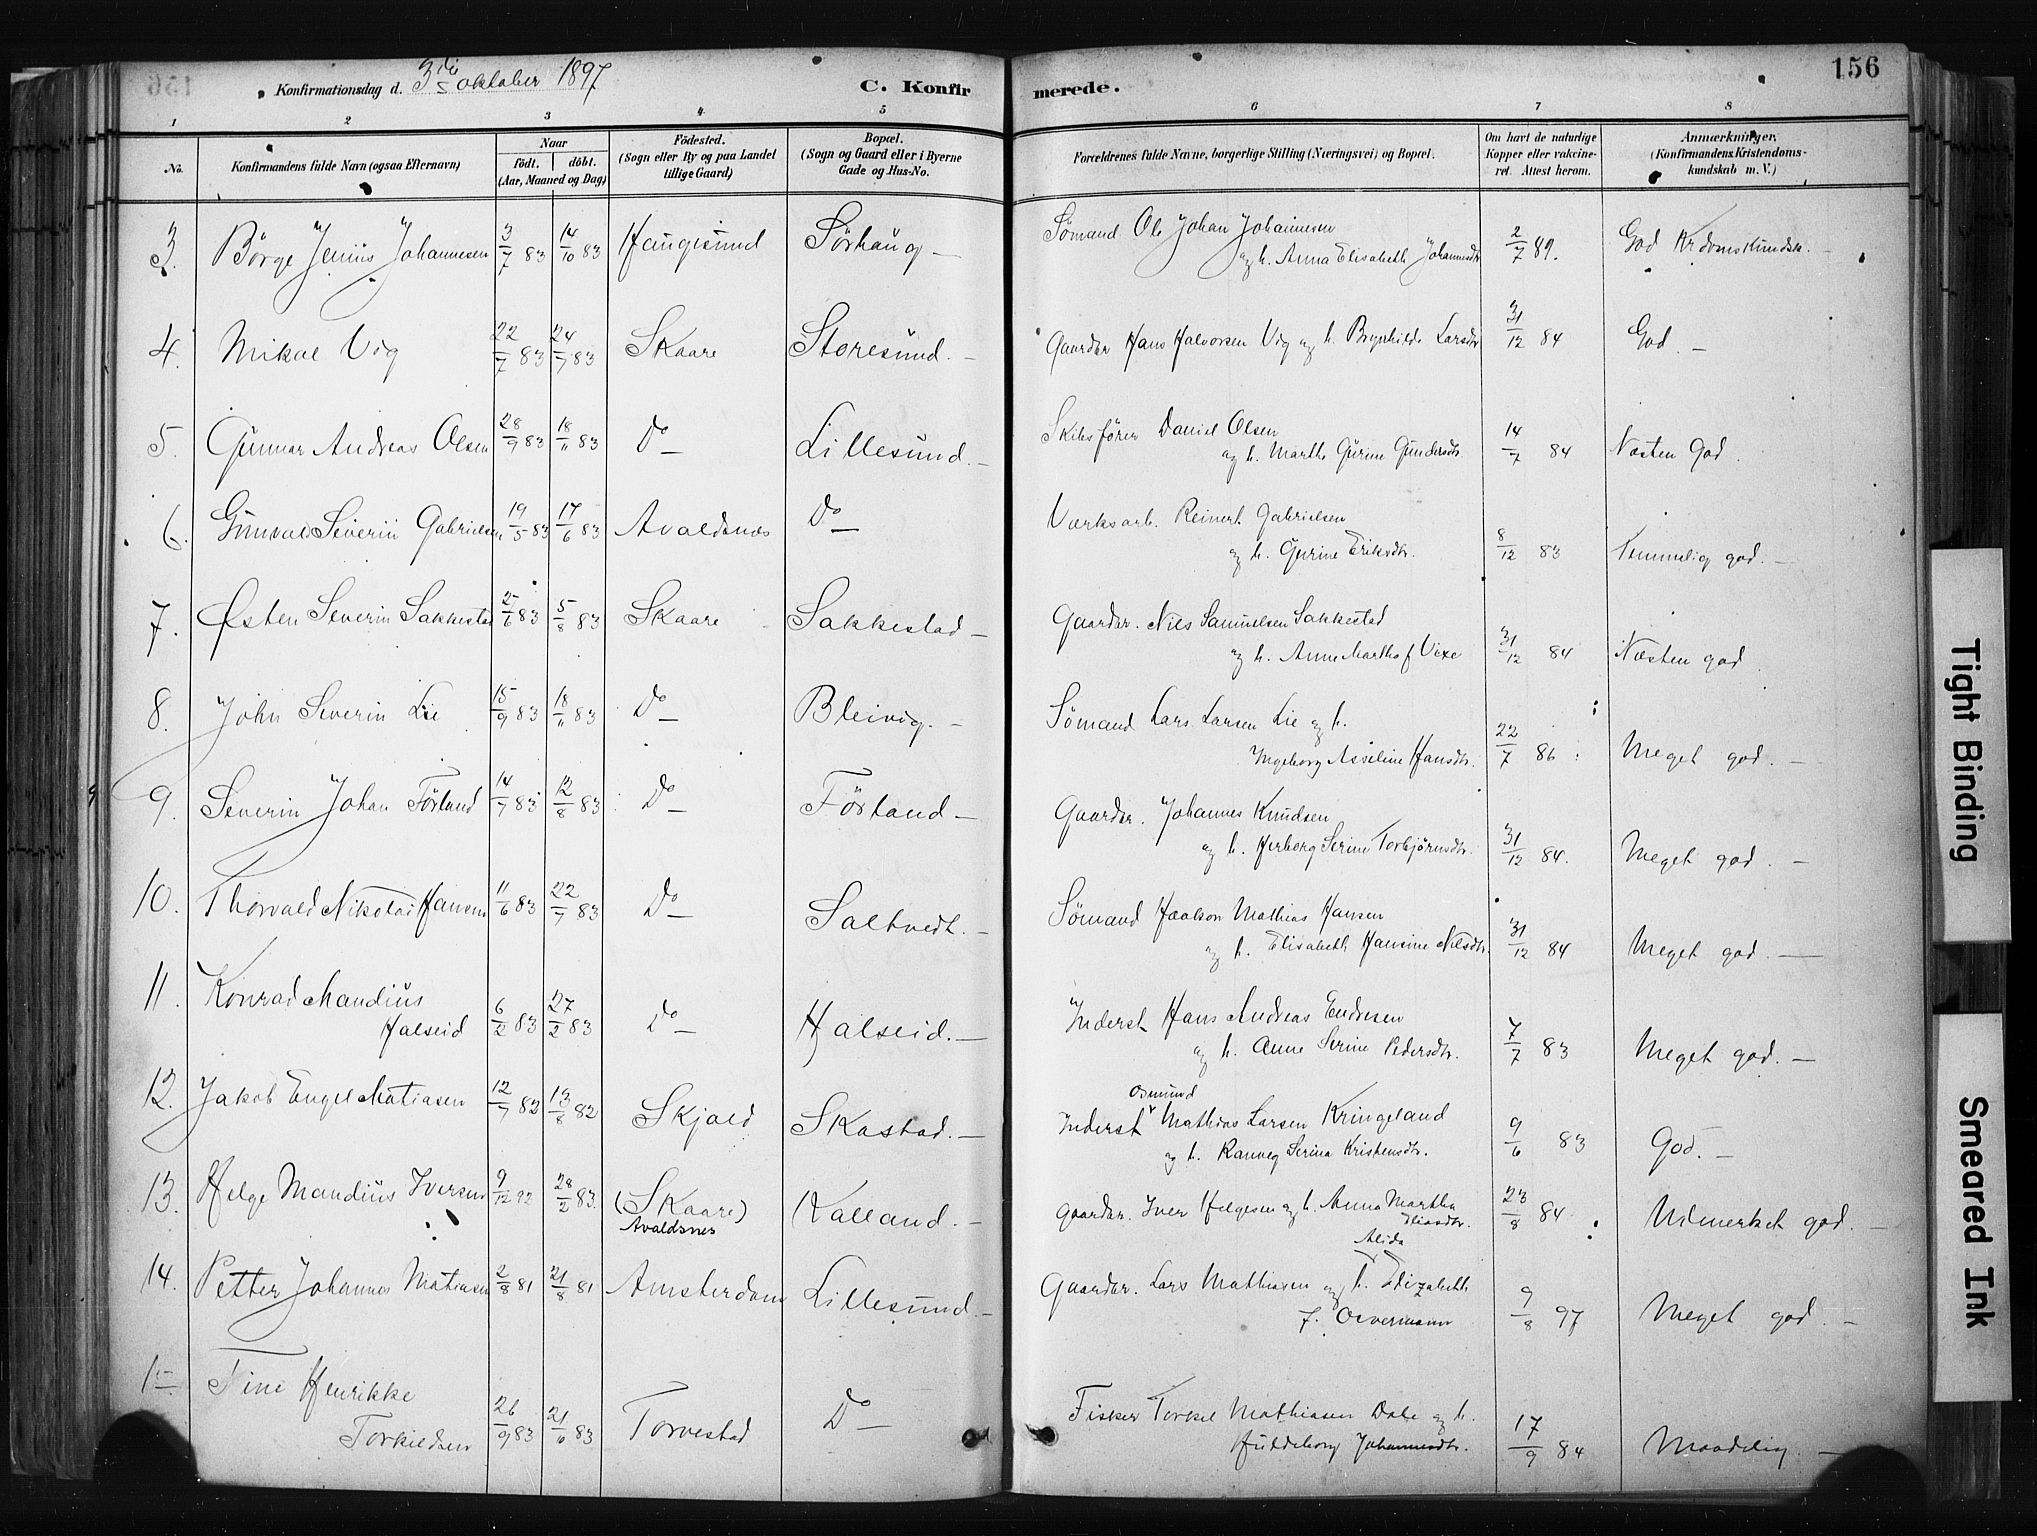 156
Konfirmationsdag d. 3die oktober 1897
C. Konfirmerede.
1 2 3 4 5 6 7 8
No.
Konfirmandens fulde Navn (ogsaa Efternavn)
Naar
født. døbt.
(Aar, Maaned og Dag)
Födested.
(Sogn eller By og paa Landet
tillige Gaard)
Bopæl.
(Sogn og Gaard eller i Byerne
Gade og Hus-No.
Forældrenes fulde Navne, borgerlige Stilling (Næringsvei) og Bopæl.
Om havt de naturlige
Kopper eller vakcine-
ret. Attest herom.
Anmærkninger.
(Konfirmandens Kristendoms-
kundskab m. V.)
3. Börge Jenius Johannesen 3/7 83 14/10 83 Haugesund Sörhaug —
Sömand Ole Johan Johannesen
og h. Anna Elisabeth Johannesdtr 2/7 89. God Krdomskundsk. —
4. Mikal Vig 22/7 83 24/7 83 Skaare Storesund. —
Gaardbr Hans Halvorsen Vig og h. Brynhilde Larsdtr 31/12 84 God. —
5. Gunnar Andreas Olsen 28/9 83 18/11 83 Do — Lillesund. —
Skibsförer Daniel Olsen
og h. Marthe Gurine Gundersdtr. 14/7 84 Næsten God.
6. Gunvald Severin Gabrielsen 19/5 83 17/6 83 Avaldsnes Do —
Værksarb. Reinert Gabrielsen
og h. Gurine Eriksdtr. 8/12 83 Temmelig god. —
7. Østen Severin Sakkestad 25/6 83 5/8 83 Skaare Sakkestad —
Gaardbr. Nils Samuelsen Sakkestad
og h. Anne Martha f Vixe 31/12 84 Næsten god
8. John Severin Lie 15/9 83 18/11 83 Do — Bleivig. —
Sömand Lars Larsen Lie og h.
Ingeborg Asseline Hansdtr. 22/7 86 Meget god. —
9. Severin Johan Förland 14/7 83 12/8 83 Do — Förland —
Gaardbr. Johannes Knudsen
og h. Herborg Serine Torbjörnsdtr. 31/12 84. Meget god. —
10. Thorvald Nikolai Hansen 11/6 83 22/7 83 Do — Saltvedt. —
Sömand Haakon Mathias Hansen
og h. Elisabeth Hansine Nilsdtr. 31/12 84 Meget god. —
11. Konrad Mandius
Halseid 6/2 83 27/2 83 Do — Halseid. —
Inderst Hans Andreas Endresen
og h. Anne Serine Pedersdtr. 7/7 83 Meget god. —
12. Jakob Engel Matiasen 12/7 82 13/8 82 Skjold Skastad. —
Osmund
Inderst Mathias Larsen Kringeland
og h. Ranveg Serina Kristensdtr. 9/6 83 God. —
13. Helge Mandius Iversen 9/12 92 28/2 83. (Skaare)
Avaldsnes Kalland. —
Gaardbr. Iver Helgesen og h. Anna Martha
Eliasdtr. 23/8 84 Udmerket god. —
14. Petter Johannes Matiasen 2/8 81 21/8 81 Amsterdam Lillesund —
Alida
Gaardbr. Lars Mathiasen og h. Elizabeth
f. Oevermann 9/8 97 Meget god. —
15. Tine Henrikke
Torkildsen 26/9 83 21/6 83 Torvestad Do —
Fisker Torkel Mathiasen Dale og h.
Huldeborg Johannesdtr. 17/9 84 Maadelig. —
Tight Binding
Smeared Ink